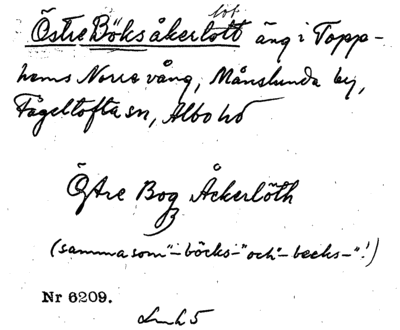 löt
Östre Böksåkerlott äng i Topp-
hems Norrevång, Månslunda by,
Fågeltofta sn, Albo hd
Östre Bog Åkerlöth
(samma som "-böcks-" och "-becks-"!)
Nr 6209.